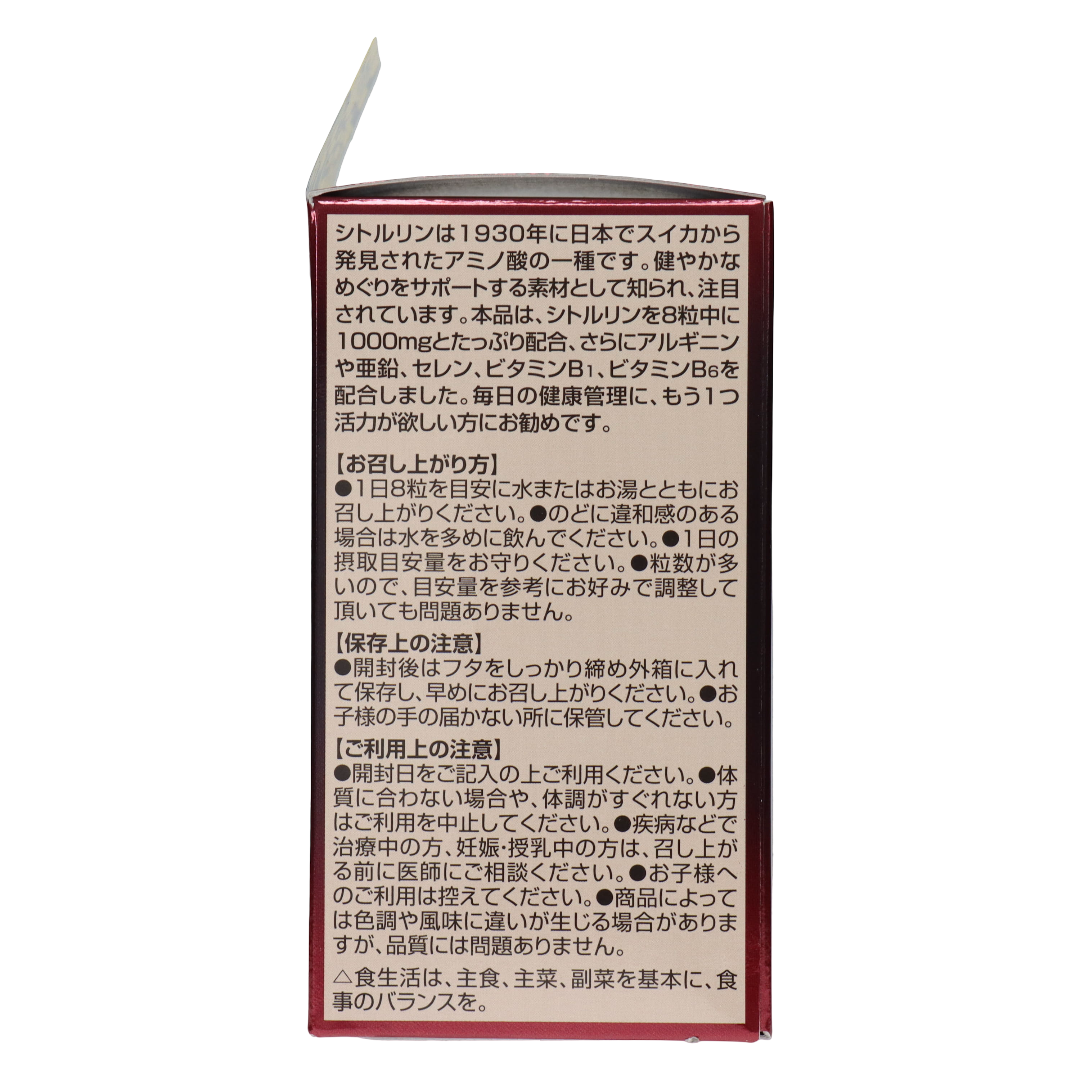 シトルリンは1930年に日本でスイカから
発見されたアミノ酸の一種です。健やかな
めぐりをサポートする素材として知られ、注目
されています。本品は、シトルリンを8粒中に
1000mgとたっぷり配合、さらにアルギニン
や亜鉛、セレン、ビタミンB1、ビタミンB6を
配合しました。毎日の健康管理に、もう1つ
活力が欲しい方にお勧めです。
【お召し上がり方】
●1日8粒を目安に水またはお湯とともにお
召し上がりください。●のどに違和感のある
場合は水を多めに飲んでください。●1日の
摂取目安量をお守りください。●粒数が多
いので、目安量を参考にお好みで調整して
頂いても問題ありません。
【保存上の注意】
●開封後はフタをしっかり締め外箱に入れ
て保存し、早めにお召し上がりください。●お
子様の手の届かない所に保管してください。
【ご利用上の注意】
●開封日をご記入の上ご利用ください。●体
質に合わない場合や、体調がすぐれない方
はご利用を中止してください。●疾病などで
治療中の方、妊娠・授乳中の方は、召し上が
る前に医師にご相談ください。●お子様へ
のご利用は控えてください。●商品によって
は色調や風味に違いが生じる場合がありま
すが、品質には問題ありません。
△食生活は、主食、主菜、副菜を基本に、食
事のバランスを。